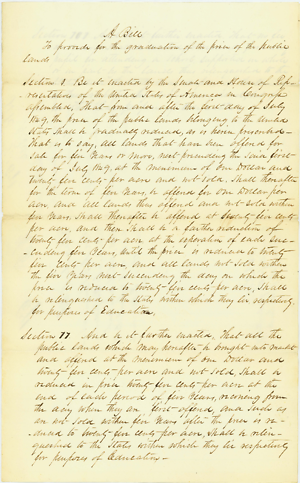 A Bill
To provide for the graduation of the price of the Public
Lands
Section 1. Be it enacted by the Senate and House of Rep-
resentatives of the United States of America in Congress
assembled, That from and after the first day of July
1849, the price of the public lands belonging to the United
States shall be gradually reduced, as is herein presented
That is to say, all lands that have been offered for
sale for ten years or more, next preceeding the said first
day of July 1849 at the minimum of one Dollar and
twenty five cents per acre and not sold, shall thereafter
for the term of five years, be offered for One Dollar per
acre, and all lands thus offered and not sold within
five years shall thereafter be offered at seventy five cents
per acre, and then shall be a further reduction of
twenty five cents per acre at the expiration of each suc-
ceeding five years until the price is reduced to twenty
five cents per acre, and all lands not sold within
the five years next succeeding the day on which the
price is reduced to twenty five cents per acre, shall
be relinquished to the States within which they lie respectively
for purposes of Education.
Section And be it further enacted, That all the
public lands which may hereafter be brought into market
and offered at the minimum of one Dollar and
twenty five cents per acre and not sold, shall be
reduced in price twenty five cents per acre at the
end of each period of five years, reckoning from
the day when they are first offered, and such as
are not sold within five years after the price is re-
duced to twenty five cents per acre, shall be relin-
quished to the States within which they lie respectively
for purposes of Education